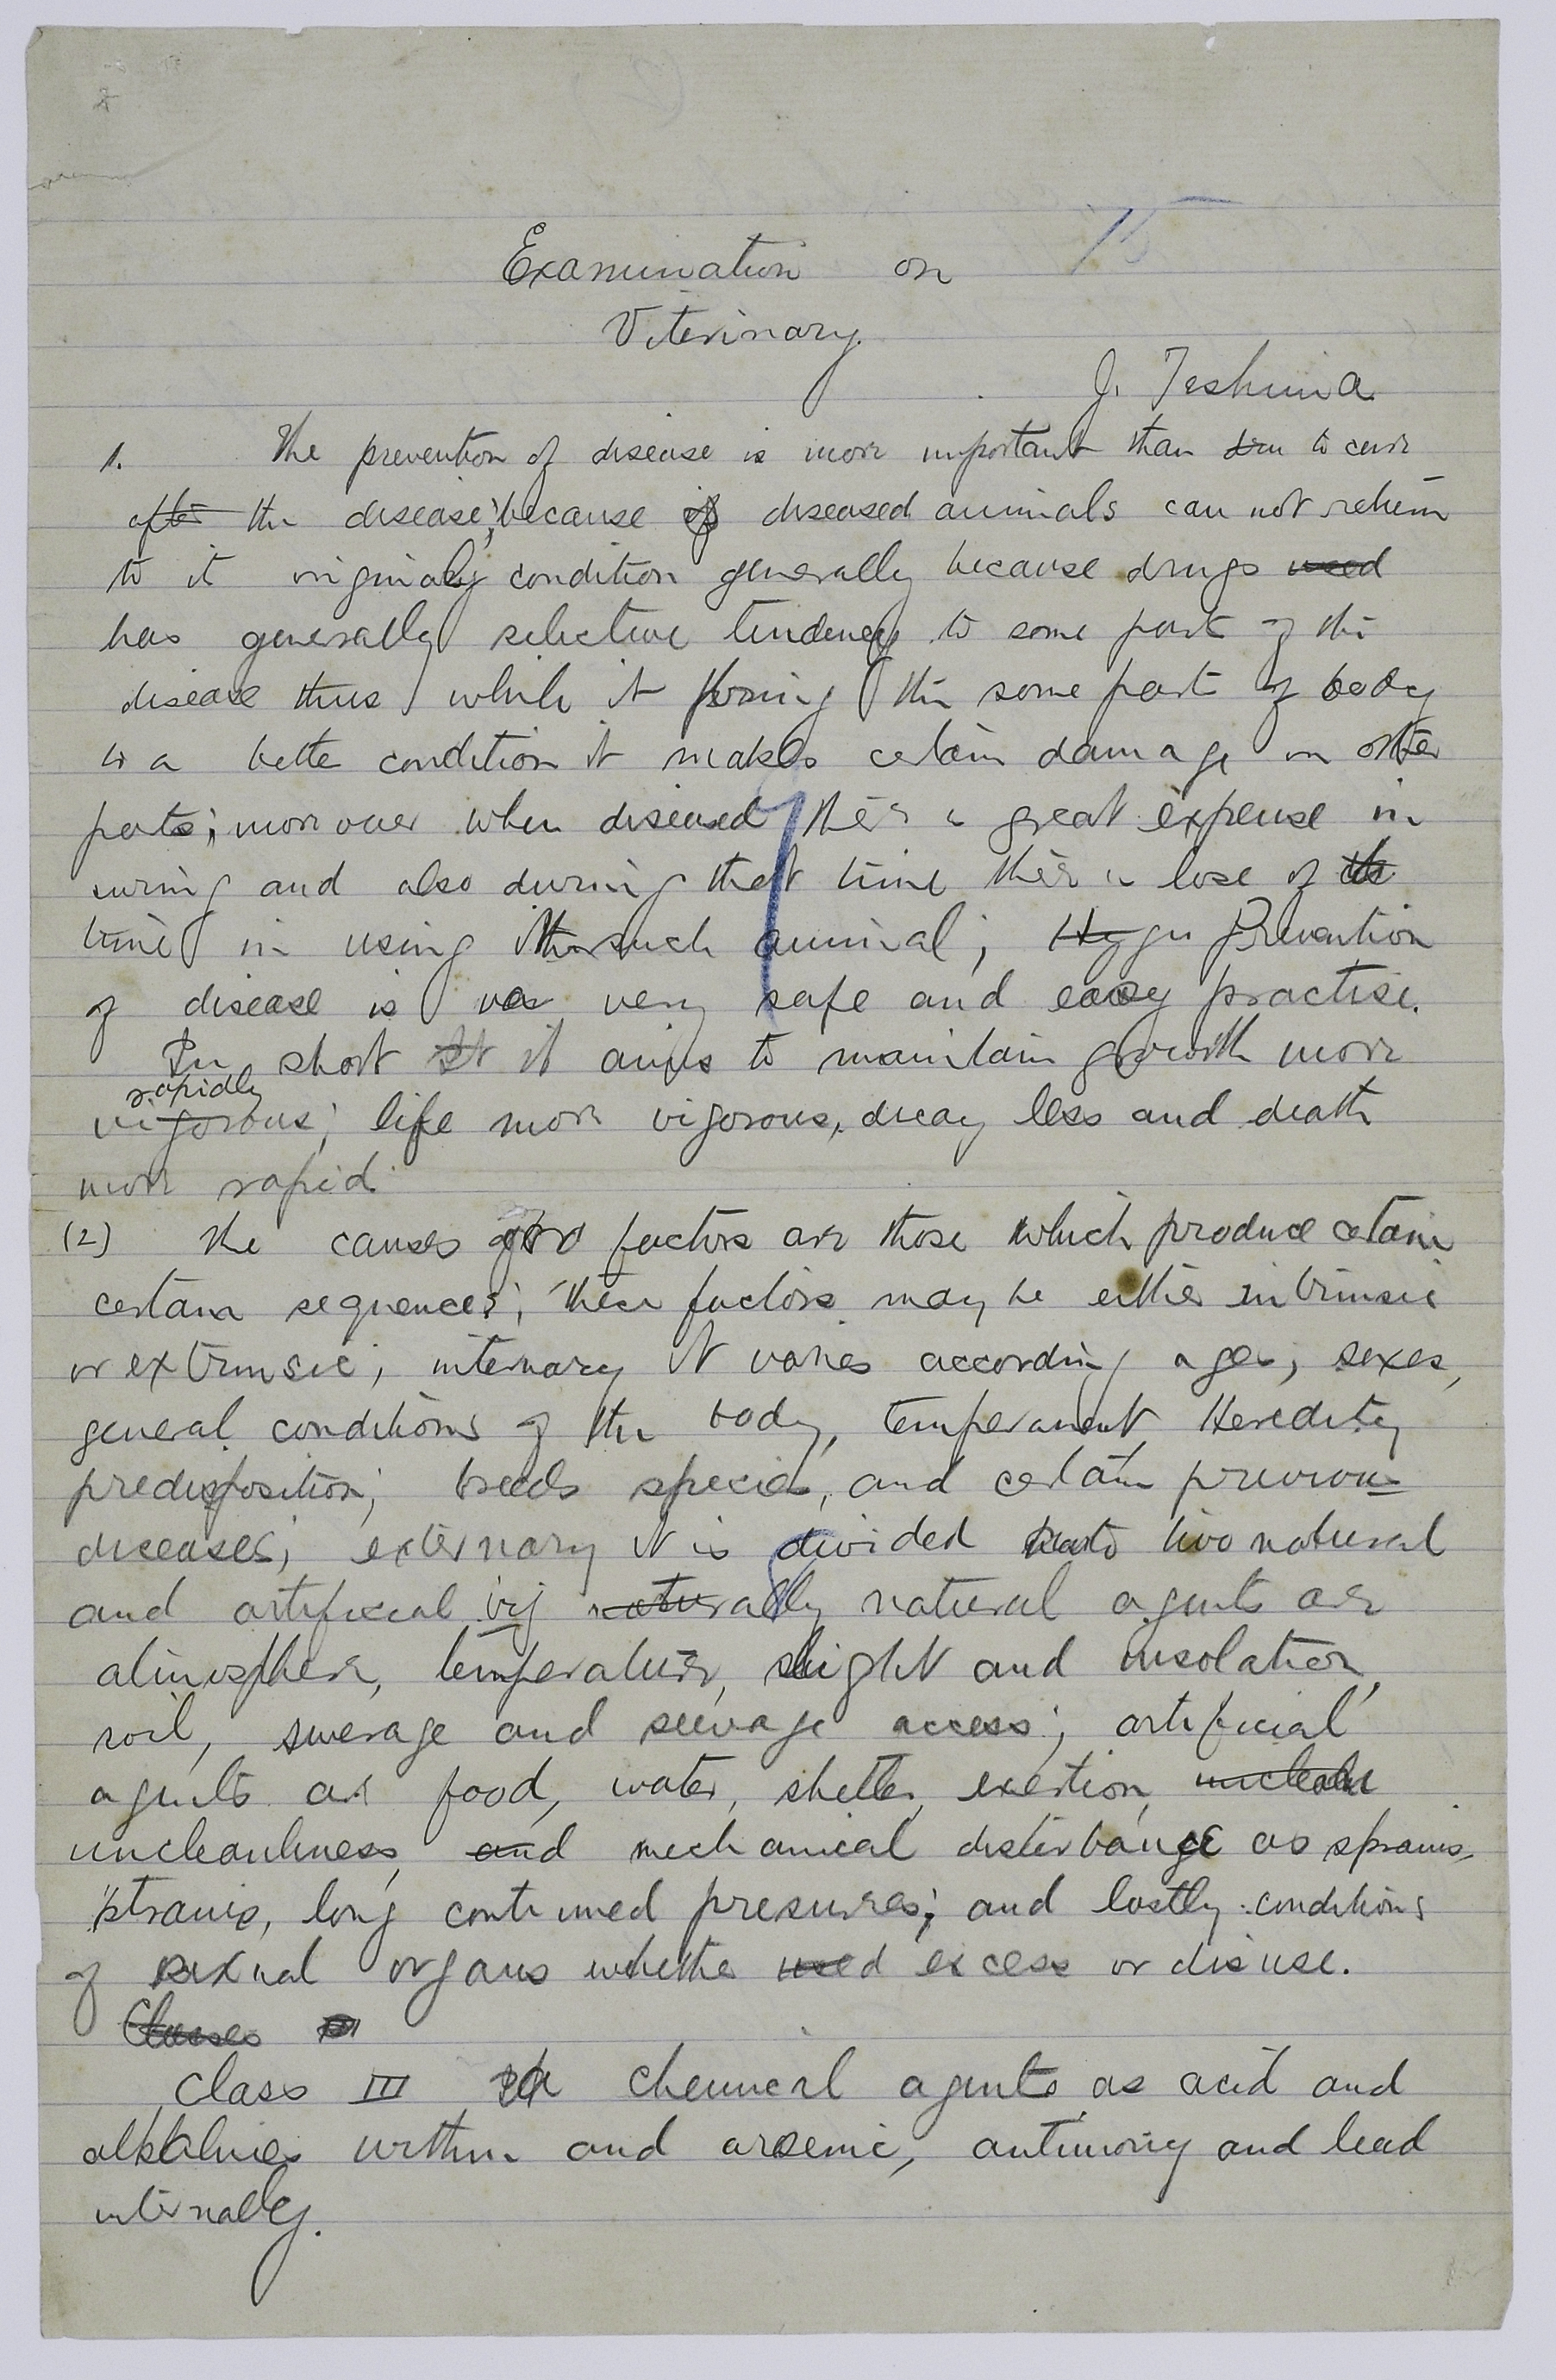 75
Examination on
Viterinary.
J. Teshima
1. The prevention of disease is more important than to cure
after the disease; because if diseased animals can not return
to it originaly condition generally because drugs used
has generally selective tendency to some part of the
disease thus while it bring the some part of body
to a bette condition it makes certain damage on other
parts; more over when diseased ther is great expense in
curing and also during that time ther is lose of the
time in using such animal; Prevention
of disease is very safe and easy practise.
In short it aims to maintain growth more
rapidly
vigorous; life more vigorous, decay less and death
more rapid.
(2) The causes or factors are those which produce certain
certain sequences; these factors may be either intrinsic
or extrinsic; internary it varies according ages, sexes,
general conditions of the body, temperament Heredity
predisposition; breeds species, and certain previous
diseases; externary it is divided into two natural
and artificial vij naturally natural agents are
atmosphere, temperature, light and insolation,
soil, swerage and seewage access; artificial
agents are food, water, shelter, exertion, unclean
uncleanliness, and mechanical disterbange as sprains,
strains, long continued presures; and lastly conditions
of sexual organs whethe used excess or disuse.
Classes
Class III chemical agents as acid and
alkalines and arsenic, antimony and lead
internally.